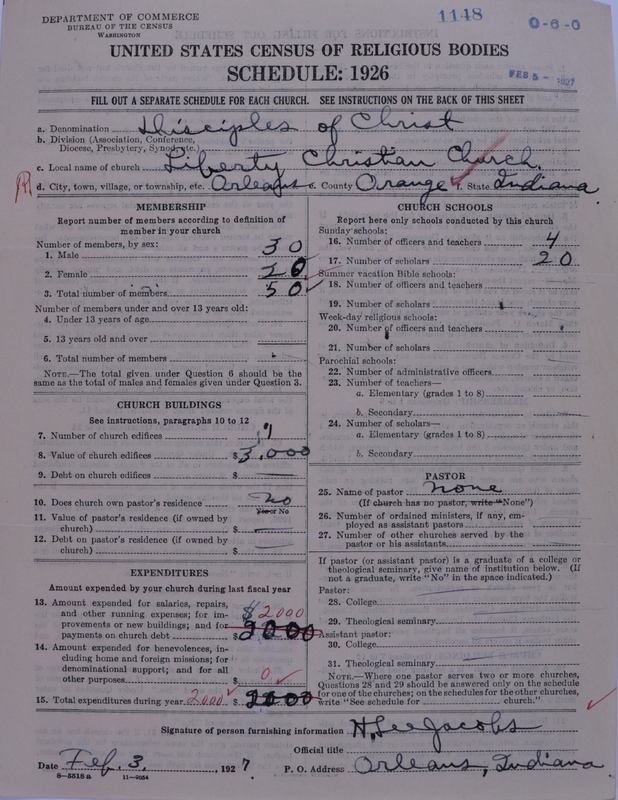 DEPARTMENT OF COMMERCE
BUREAU OF THE CENSUS
WASHINGTON
1148
0-6-0
UNITED STATES CENSUS OF RELIGIOUS BODIES
SCHEDULE: 1926
FEB 5 - 1927
FILL OUT A SEPARATE SCHEDULE FOR EACH CHURCH. SEE INSTRUCTIONS ON THE BACK OF THIS SHEET
a. Denomination Disciples of Christ
b. Division (Association, Conference, Diocese, Presbytery, Synod, etc.)
c. Local name of church Liberty Christian Church.
d. City, town, village, or township, etc. Orleans e. County Orange f. State Indiana
MEMBERSHIP
Report number of members according to definition of member in your church
Number of members, by sex:
1. Male 30
2. Female 20
3. Total number of members 50
Number of members under and over 13 years old:
4. Under 13 years of age
5. 13 years old and over
6. Total number of members
NOTE.—The total given under Question 6 should be same as the total of males and females given under Question 3.
CHURCH BUILDINGS
See instructions, paragraphs 10 to 12
7. Number of church edifices 1
8. Value of church edifices $3,000
9. Debt on church edifices $
10. Does church own pastor's residence no
Yes or No
11. Value of pastor's residence (if owned by church) $
12. Debt on pastor's residence (if owned by church) $
EXPENDITURES
Amount expended by your church during last fiscal year
13. Amount expended for salaries, repairs, and other running expenses; for improvements or new buildings; and for payments on church debt $2000
14. Amount expended for benevolences, including home and foreign missions; for denominational support; and for all other purposes $ 0
15. Total expenditures during year 2000 $
CHURCH SCHOOLS
Report here only schools conducted by this church
Sunday schools:
16. Number of officers and teachers 4
17. Number of scholars 20
Summer vacation Bible schools:
18. Number of officers and teachers
19. Number of scholars
Week-day religious schools:
20. Number of officers and teachers
21. Number of scholars
Parochial schools:
22. Number of administrative officers
23. Number of teachers—
a. Elementary (grades 1 to 8)
b. Secondary
24. Number of scholars—
a. Elementary (grades 1 to 8)
b. Secondary
PASTOR
25. Name of pastor none
(If church has no pastor, write "None")
26. Number of ordained ministers, if any, employed as assistant pastors
27. Number of other churches served by the pastor or his assistants
If pastor (or assistant pastor) is a graduate of a college or theological seminary, give name of institution below. (If not a graduate, write "No" in the space indicated.)
Pastor:
28. College
29. Theological seminary
Assistant pastor:
30. College
31. Theological seminary
NOTE.—Where one pastor serves two or more churches, Questions 28 and 29 should be answered only on the schedule for one of the churches; on the schedules for the other churches, write "See schedule for church."
Signature of person furnishing information H. Lee Jacobs
Official title
Date Feb. 3, 1927 P. O. Address Orleans, Indiana
8-5518 a 11-9054